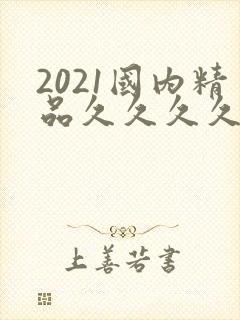 2021國内精
品久久久久
上善若書